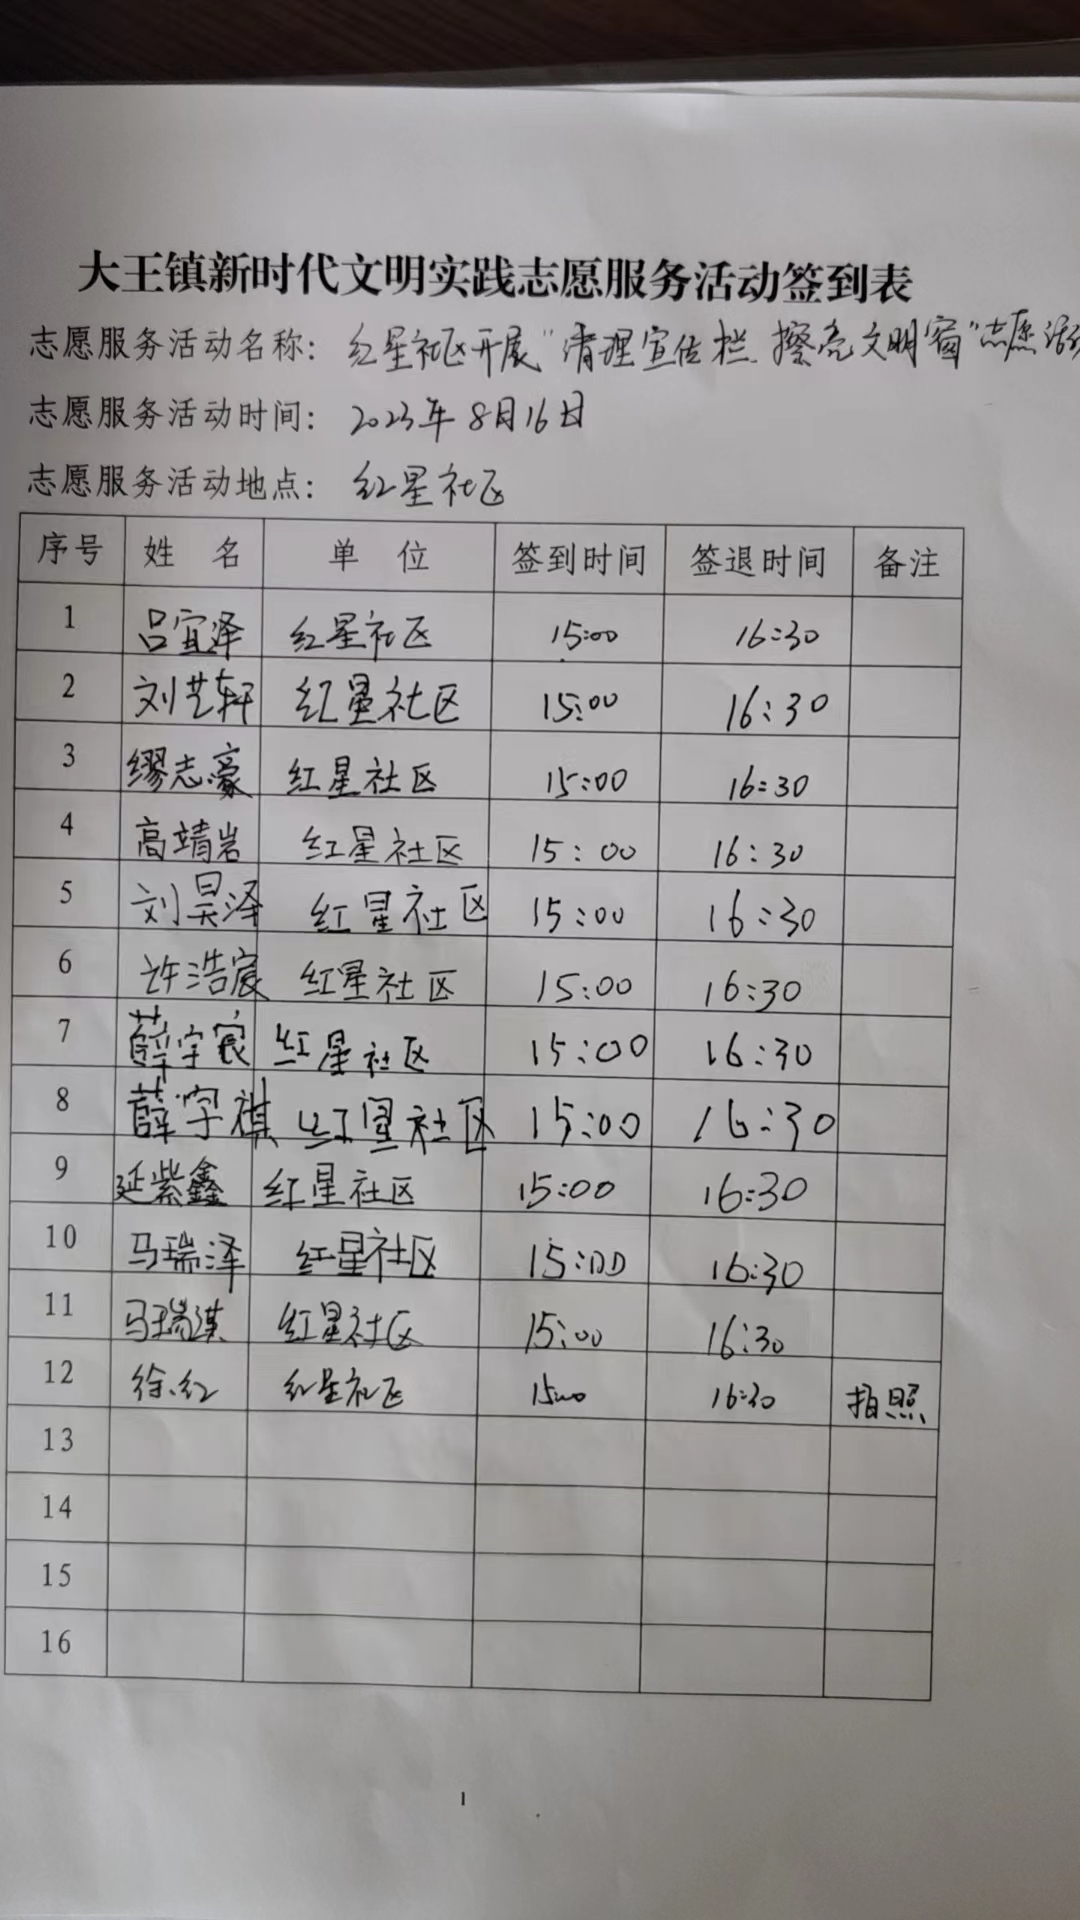 大王镇新时代文明实践志愿服务活动签到表
志愿服务活动名称：红星社区开展“清理宣传栏、擦亮文明窗”志愿活
志愿服务活动时间：2023年8月16日
志愿服务活动地点：红星社区
序号 姓名 单位 签到时间 签退时间 备注
1 吕宜泽 红星社区 15:00 16:30
2 刘艺轩 红星社区 15:00 16:30
3 缪志豪 红星社区 15:00 16:30
4 高靖岩 红星社区 15:00 16:30
5 刘昊泽 红星社区 15:00 16:30
6 许浩宸 红星社区 15:00 16:30
7 薛宇宸 红星社区 15:00 16:30
8 薛宇祺 红星社区 15:00 16:30
9 延紫鑫 红星社区 15:00 16:30
10 马瑞泽 红星社区 15:00 16:30
11 马瑞淇 红星社区 15:00 16:30
12 徐红 红星社区 15:00 16:30 拍照
13
14
15
16
1